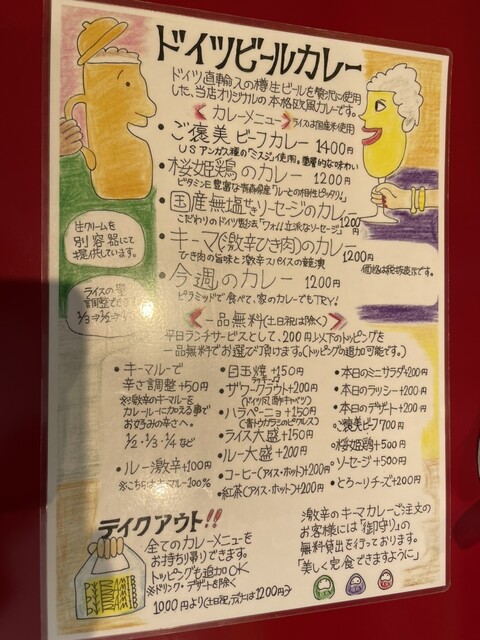 ドイツビールカレー
ドイツ直輸入の樽生ビールを贅沢に使用
した、当店オリジナルの本格欧風カレーです。
カレーメニュー ライスは国産米使用
・ご褒美ビーフカレー 1400円
USアンガス種の"ミスジ"使用。重層的な味わい
・桜姫鶏のカレー 1200円
ビタミンE豊富な青森県産「ルーとの相性ピッタリ」
・国産無塩せきソーセージのカレー 1200円
こだわりのドイツ製法「フォルム立派なソーセージ」
・キーマ(激辛ひき肉)のカレー 1200円
ひき肉の旨味と激辛スパイスの競演
価格は税抜表示です。
・今週のカレー 1200円
ピラミッドで食べて、家のカレーでもTRY!
生クリームを
別容器にて
提供しています。
ライスの量
調整できます
一品無料(土日祝は除く)
平日ランチサービスとして、200円以下のトッピングを
一品無料でお選び頂けます。(トッピングの追加可能です。)
・キーマルーで
辛さ調整 +50円
※激辛のキーマルーを
カレールーに加える事で
お好みの辛さへ。
1/2・1/3・1/4 など
・ルー激辛+100円
※こちらはキーマルー100%
・目玉焼+150円
・ザワークラウト+200円
(ドイツ風酢キャベツ)
・ハラペーニョ+150円
(青トウガラシのピクルス)
・ライス大盛+150円
・ルー大盛+200円
・コーヒー(アイス・ホット)+200円
・紅茶(アイス・ホット)+200円
・本日のミニサラダ+200円
・本日のラッシー+200円
・本日のデザート+200円
ご褒美ビーフ700円
桜姫鶏+500円
ソーセージ+500円
・とろ〜りチーズ+200円
テイクアウト!!
全てのカレーメニューを
お持ち帰りできます。
トッピングも追加OK
※ドリンク・デザートを除く
1000円より(土日祝、ディナーは1200円〜)
激辛のキーマカレーご注文の
お客様には「御守り」の
無料貸出を行っております。
「美しく完食できますように」